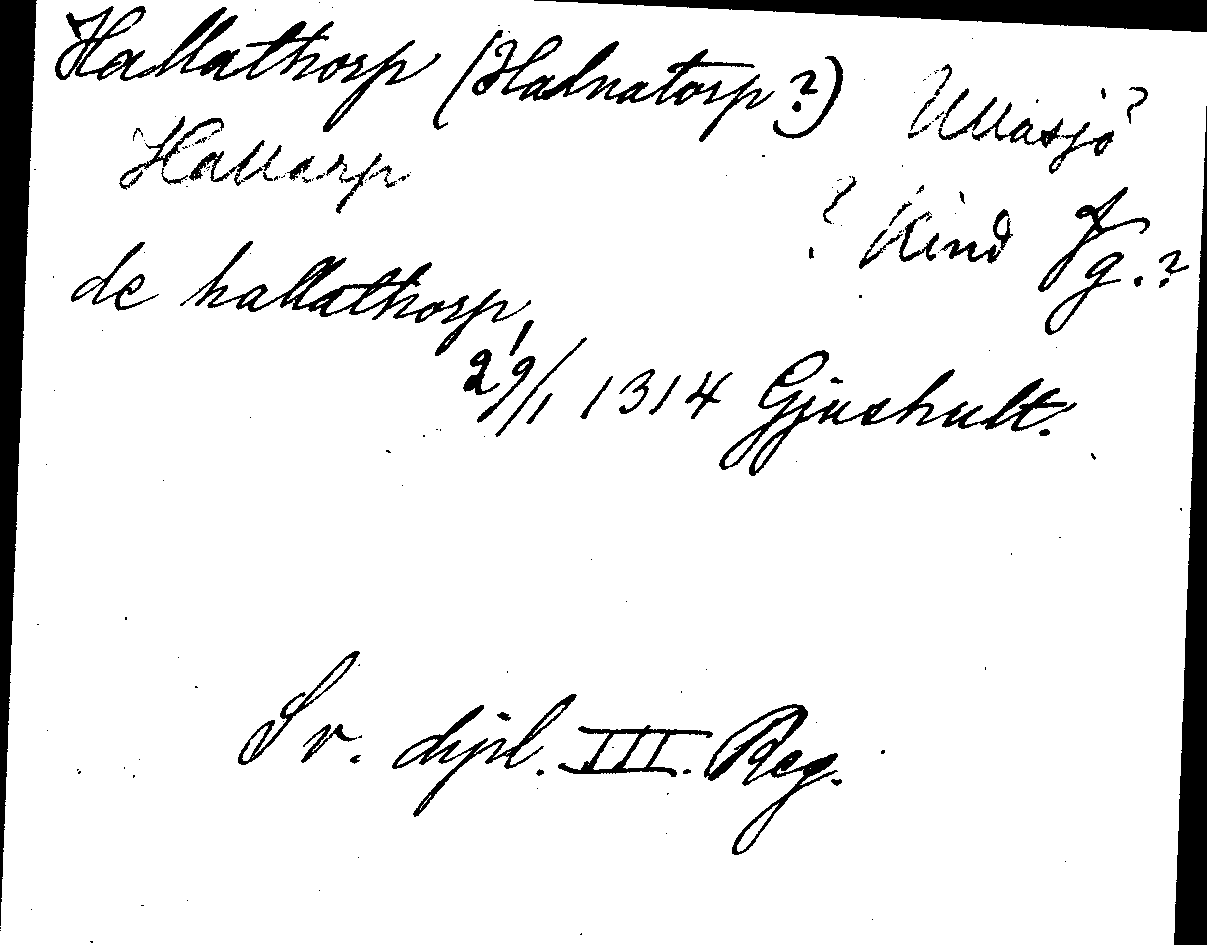 Hallathorp (Halnatorp?) Ullasjö?
Hallarp ? Kind Vg.?
de hallathorp,
29/1 1314 Gjushult.
Sv. dipl. III. Reg.